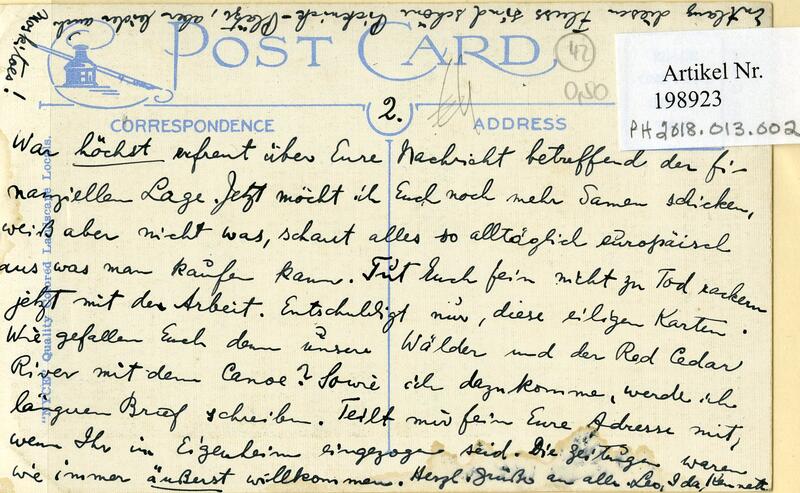 Entlang diesem Fluss sind schöne Picknick-Plätze, aber leider auch
Moskitoes!
POST CARD
42
0,50
Artikel Nr.
198923
PH2018.013.002
2.
CORRESPONDENCE
ADDRESS
War höchst erfreut über Eure Nachricht betreffend der fi-
nanziellen Lage. Jetzt möcht ich Euch noch mehr Samen schicken,
weiß aber nicht was, schaut alles so alltäglich europäisch
aus was man kaufen kann. Tut Euch fein nicht zu Tod rackern
jetzt mit der Arbeit. Entschuldigt nur, diese eiligen Karten.
Wie gefallen Euch denn unsere Wälder und der Red Cedar
River mit dem Canoe? Sowie ich dazukomme, werde ich
längeren Brief schreiben. Teilt mir fein Eure Adresse mit,
wenn Ihr im Eigenheim eingezogen seid. Die Zeitungen waren
wie immer äußerst willkommen. Herzl. Grüße an alle. Leo, Ida, Kenneth
Quality Colored Landscape Locals.